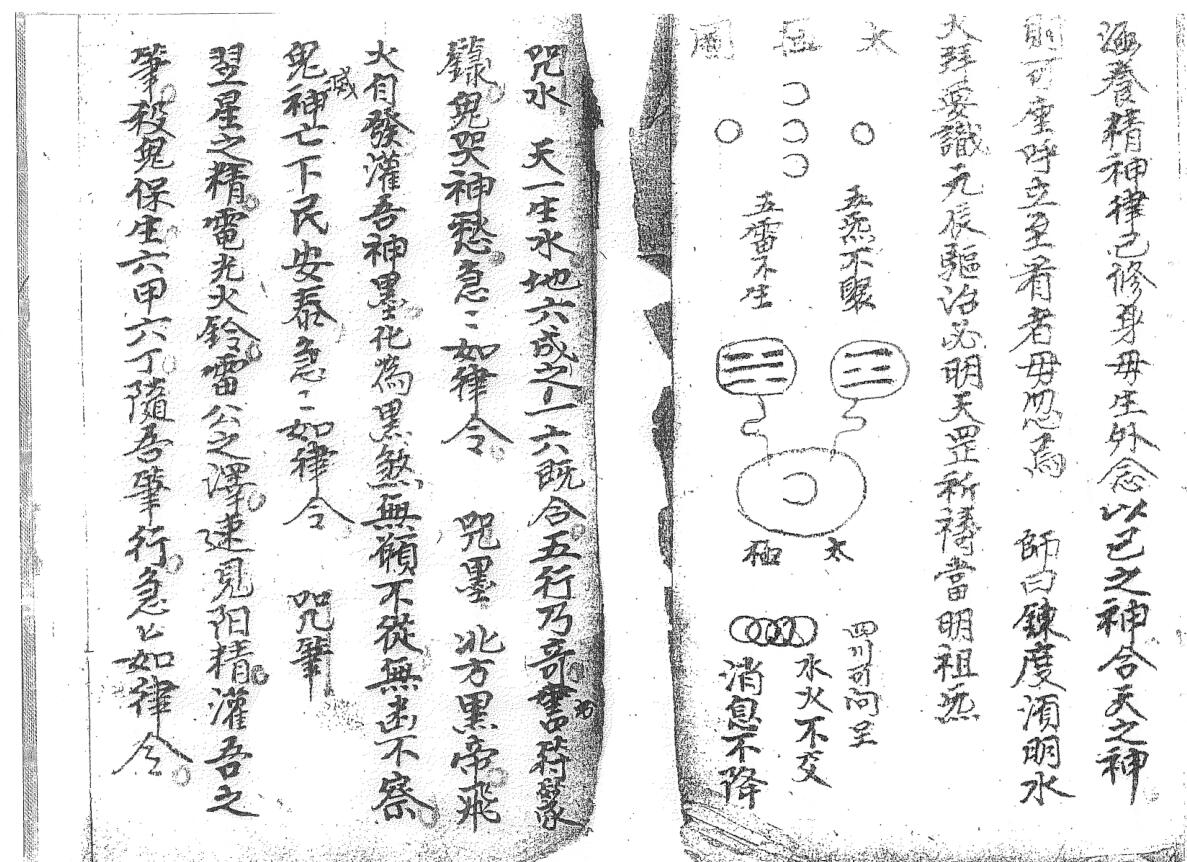 涵養精神律己修身毋生外念以己之神合天之神
則可座呼立至看者毋忽焉　師曰鍊度須明水
火拜要識元辰驅治必明天罡祈禱當明祖炁
太極圖
五炁不聚
五雷不生
太極
四川可問呈
水火不交
消息不降
咒水　天一生水地六成之一六既合五行乃奇書符篆
籙鬼哭神愁急ミ如律令　咒墨　北方黑帝飛
火自發灌吾神墨化為黑煞無願不從無幽不察
鬼滅神亡下民安泰急ミ如律令　咒筆
翌星之精電光火鈴雷公之澤速見阳精灌吾之
筆殺鬼保生六甲六丁隨吾筆行急ミ如律令